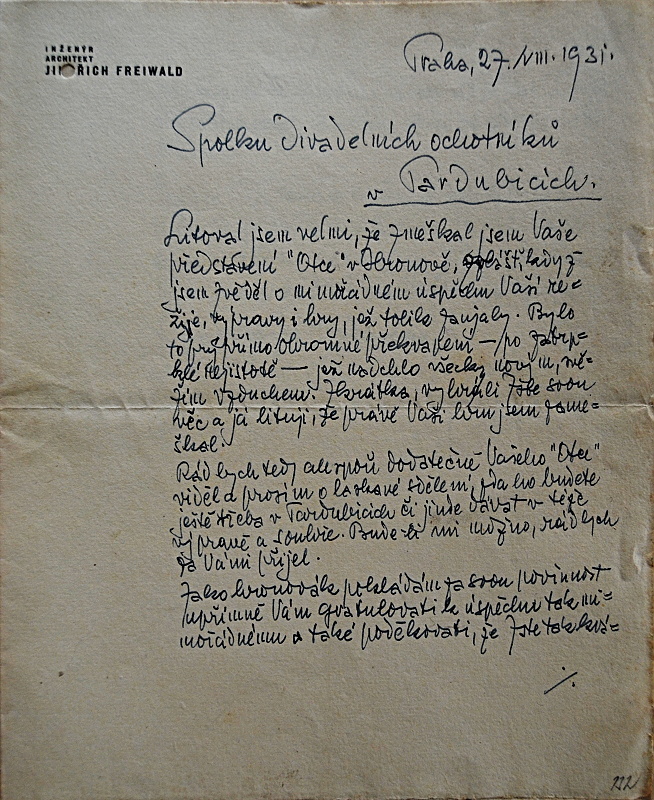 INŽENÝR
ARCHITEKT
JINDŘICH FREIWALD
Praha, 27. VIII. 1931.
Spolku divadelních ochotníků
v Pardubicích.
Litoval jsem velmi, že zmeškal jsem Vaše
představení "Otce" v Hronově, zvlášť, když
jsem zvěděl o mimořádném úspěchu Vaší re-
žije, výpravy i hry, jež tolik zaujaly. Bylo
to prý přímo ohromné překvapení — po
nejistotě — jež nadchlo všecky novým, svě-
žím vzduchem. Zkrátka, vyhráli Jste svou
věc a já lituji, že právě Vaši hru jsem zame-
škal.
Rád bych tedy alespoň dodatečně Vašeho "Otce"
viděl a prosím o laskavé sdělení, zda ho budete
ještě třeba v Pardubicích či jinde dávat v téže
výpravě a souhře. Bude-li mi možno, rád bych
za Vámi přijel.
Jako hronovák pokládám za svou povinnost
upřímně Vám gratulovati k úspěchu tak mi-
mořádnému a také poděkovati, že Jste tak krá-
./.
222